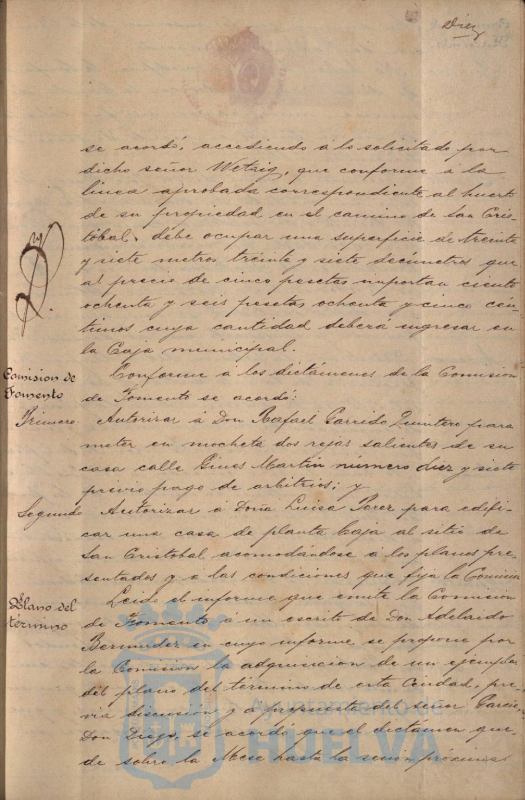 Diez
se acordó, accediendo á lo solicitado por
dicho señor Wetzig, que conforme á la
línea aprobada correspondiente al huerto
de su propiedad en el camino de San Cris-
tóbal, debe ocupar una superficie de treinta
y siete metros treinta y siete decímetros que
al precio de cinco pesetas importan ciento
ochenta y seis pesetas ochenta y cinco cén-
timos cuya cantidad deberá ingresar en
la Caja municipal.
Comision de
Fomento
Conforme á los dictámenes de la Comision
de Fomento se acordó:
Primero
Autorizar á Don Rafael Garrido Quintero para
meter en mocheta dos rejas salientes de su
casa calle Gines Martin número diez y siete
previo pago de arbitrios; y
Segundo
Autorizar á Doña Luisa Perez para edifi-
car una casa de planta baja al sitio de
San Cristobal acomodándose á los planos pre-
sentados y a las condiciones que fija la Comision
Plano del
término
Leido el informe que emite la Comision
de Fomento á un escrito de Don Adelardo
Bermudez en cuyo informe se propone por
la Comision la adquisicion de un ejemplar
del plano del término de esta Ciudad, pre-
via discusion y á propuesta del señor Garcia
Don Diego, se acordó que el dictamen que-
de sobre la Mesa hasta la sesion próxima
Ayuntamiento de
HUELVA